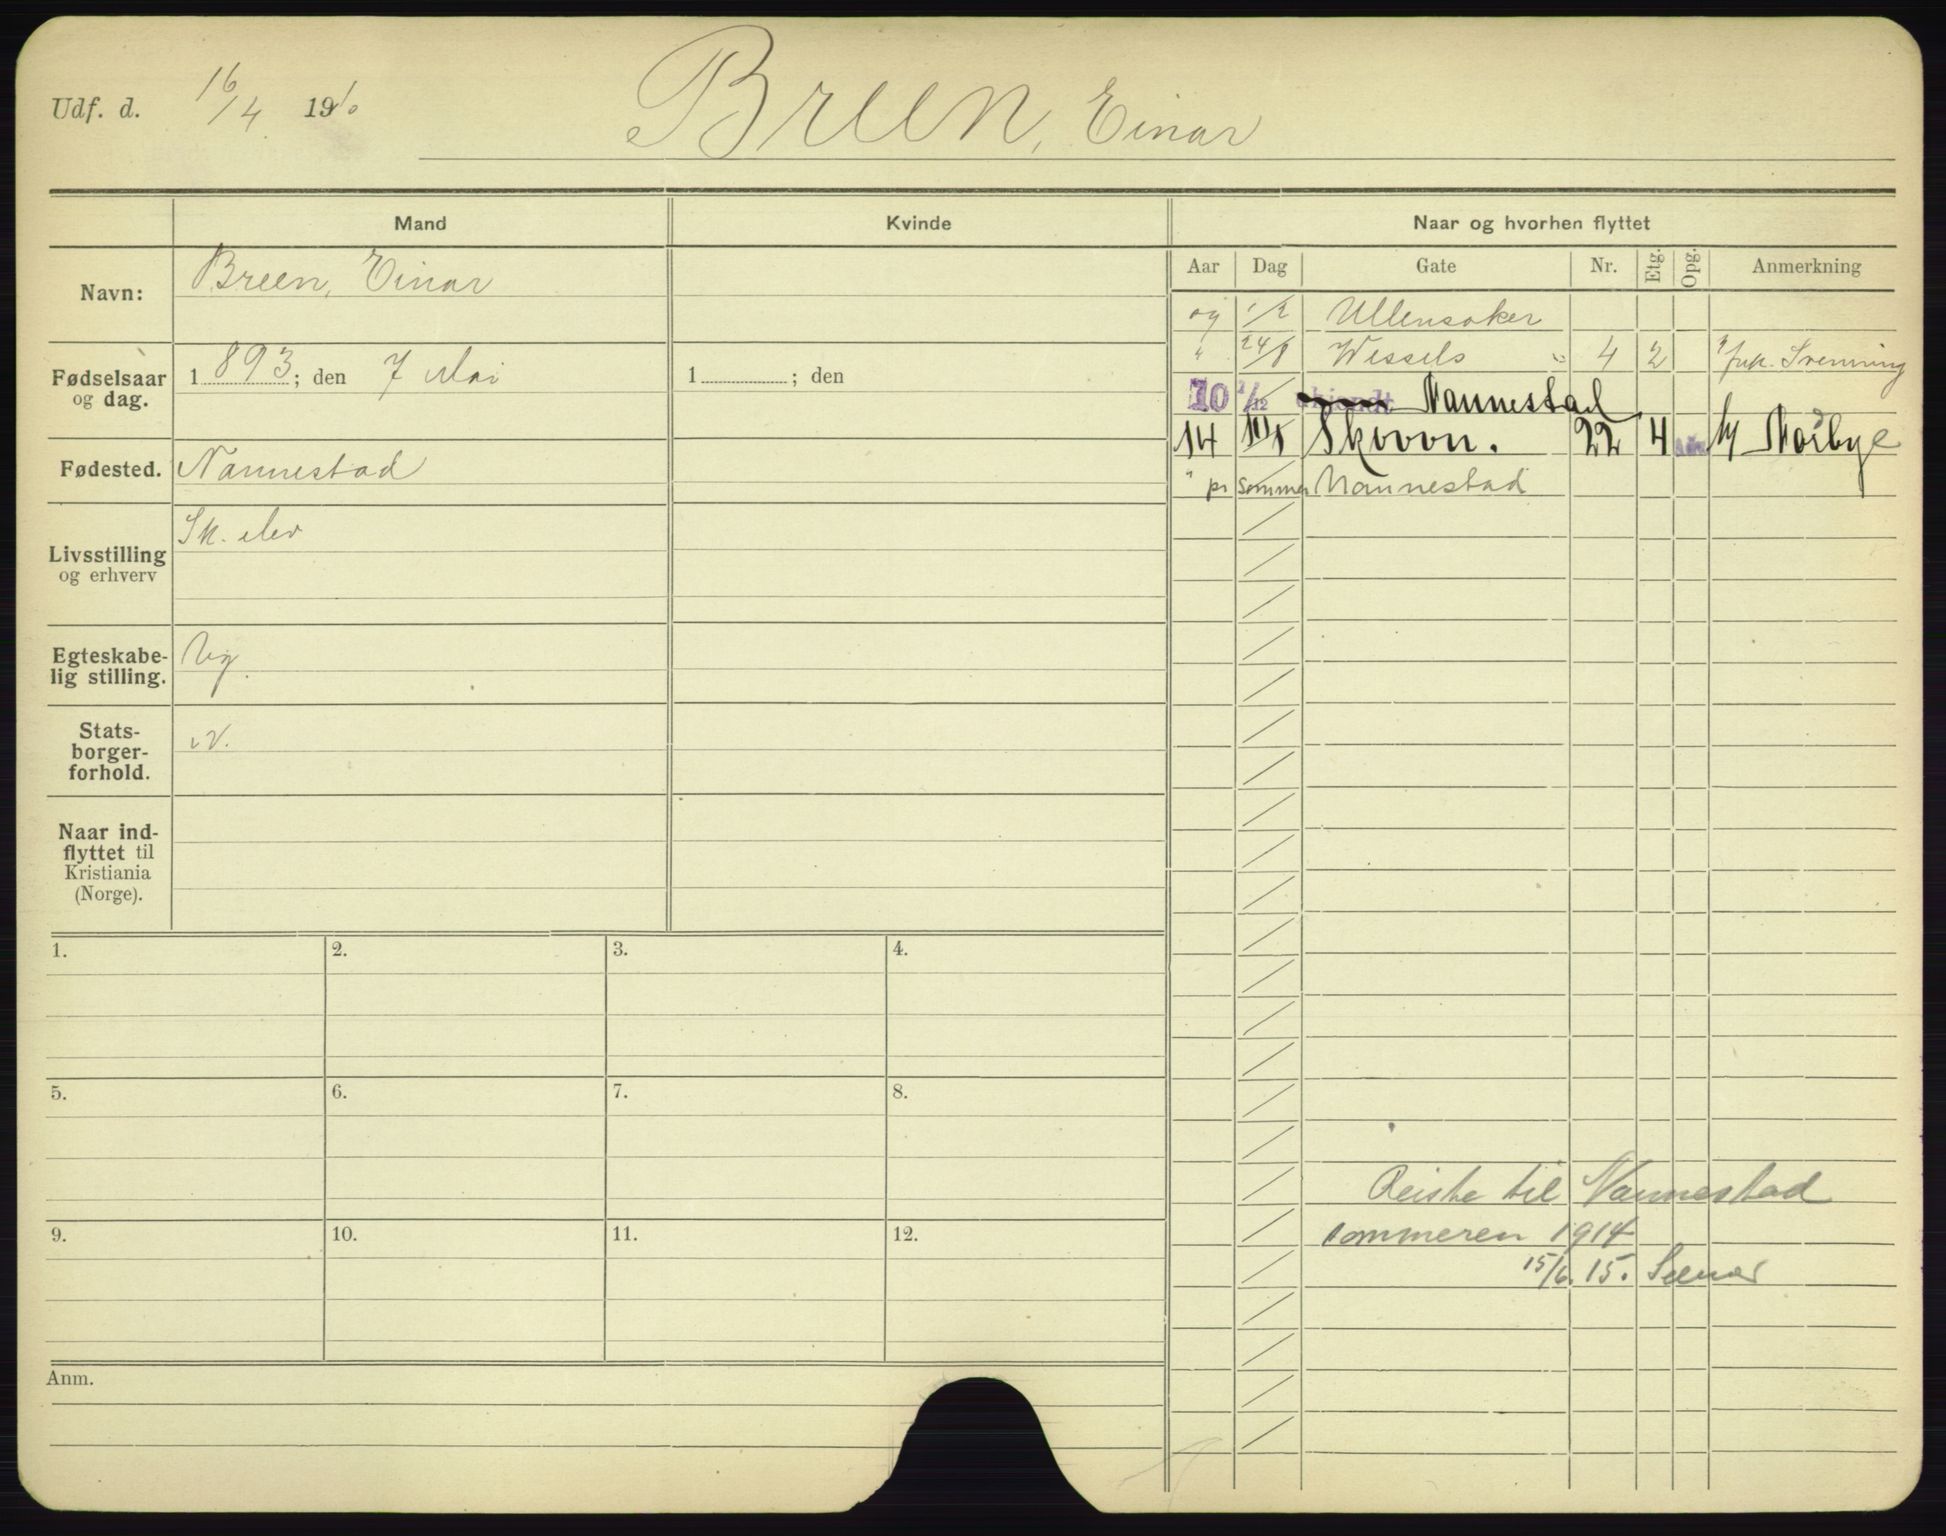 Udf. d. 16/4 1910 Breen, Einar
Mand Kvinde Naar og hvorhen flyttet
Navn: Breen, Einar
Fødselsaar og dag. 1893; den 7 Mai 1 ; den
Fødested. Nannestad
Livsstilling og erhverv Sk. elev
Egteskabe-
lig stilling. Ug.
Stats-
borger-
forhold. N.
Naar ind-
flyttet til
Kristiania
(Norge).
1. 2. 3. 4.
5. 6. 7. 8.
9. 10. 11. 12.
Anm.
Aar Dag Gate Nr. Etg. Opg. Anmerkning
09 1/2 Ullensaker
" 24/8 Wessels " 4 2 Svenning
10 1/12 Nannestad
14 Skovvn. 22 4 Moibye
" pr sommer Nannestad
Reiste til Nannestad
sommeren 1914
15/6.15.